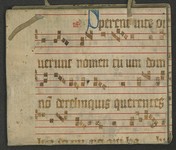 Sperent in te o
uerunt nomen tuum dom
nō derelinquis querentes